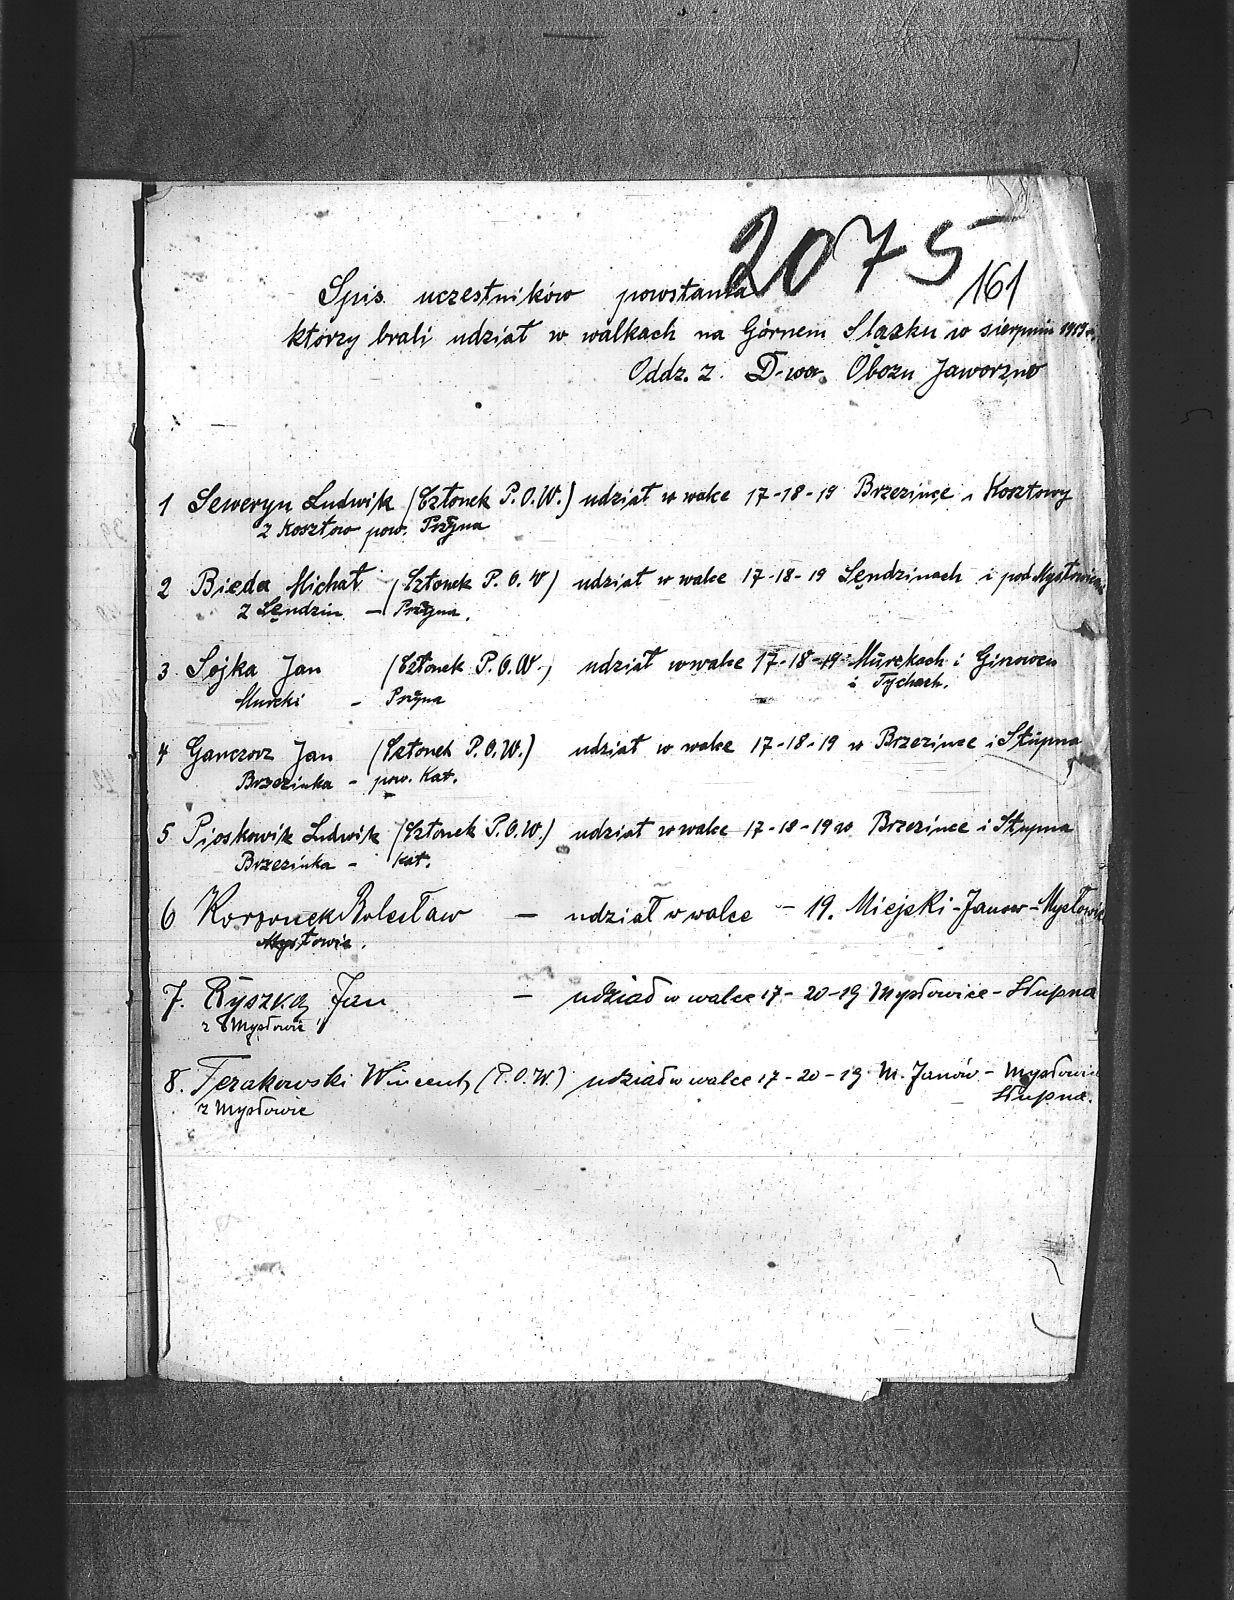 2075
161
Spis uczestników powstania
którzy brali udział w walkach na Górnem Slasku w sierpniu 1919 r.
Oddz. z D-wa Obozu Jaworzno
1 Seweryn Ludwik (Członek P.O.W.) udział w walce 17-18-19 Brzezince i Kosztowy
z Kosztow pow. Pszczyna
2 Bieda Michał (Członek P.O.W) udział w walce 17-18-19 Lędzinach i pod Mysłowicami
z Lędzin - Pszczyna.
3 Sojka Jan (Członek P.O.W.) udział w walce 17-18-19 Murckach i Giszowcu
i Tychach.
Murcki -
4 Ganczorz Jan (Członek P.O.W.) udział w walce 17-18-19 w Brzezince i Słupna
Brzezinka - pow. Kat.
5 Pioskowik Ludwik (Członek P.O.W.) udział w walce 17-18-19 w Brzezince i Słupna
Brzezinka - Kat.
6 Korzonek Bolesław - udział w walce - 19. Miejski-Janow-Mysłowice
Mysłowic.
7. Ryszka Jan - udział w walce 17-20-19 Mysłowice-Słupna
z Mysłowic
8. Terakowski Wincenty (P.O.W.) udział w walce 17-20-19 M. Janów - Mysłowice
Słupna.
z Mysłowic